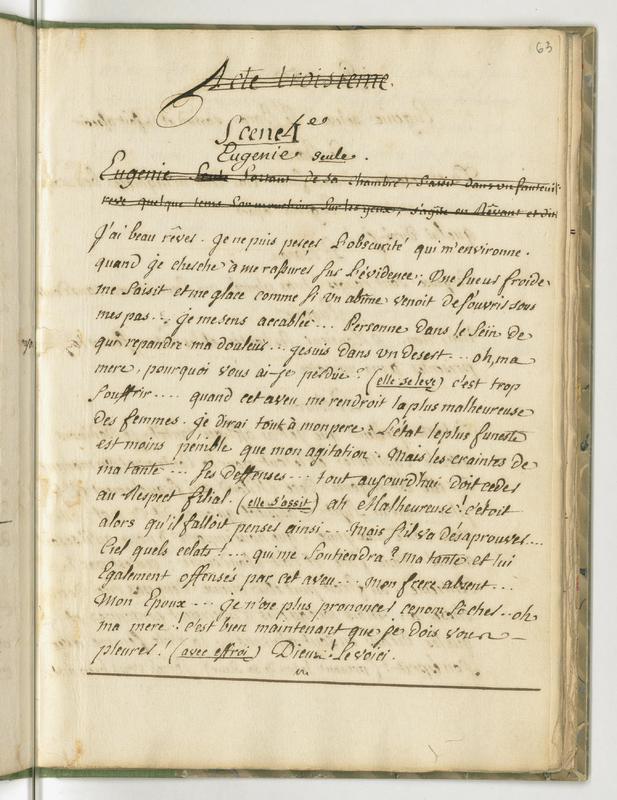 63
Acte troisieme.
Scene 4e
Eugenie seule.
Eugenie Seule Sortant de sa chambre, s'assit dans un fauteuil
reve quelque tems Son mouchoir Sur les yeux, s'agite en Rêvant et dit
J'ai beau rêver. je ne puis percer L'obscurité qui m'environne.
quand je cherche a me rassurer sur L'évidence, Une sueur froide
me saisit et me glace comme si un abîme venoit de s'ouvrir sous
mes pas... je me sens accablée... Personne dans le Sein de
qui repandre ma douleur... je suis dans un desert... oh, ma
mere, pourquoi vous ai-je perdüe? (elle se leve) c'est trop
Souffrir.... quand cet aveu me rendroit la plus malheureuse
des femmes. je dirai tout à mon pere. L'état le plus funeste
est moins pénible que mon agitation. Mais les craintes de
ma tante... ses deffenses... tout aujourd'hui doit ceder
au Respect filial. (elle s'assit) ah Malheureuse! c'etoit
alors qu'il falloit penser ainsi... Mais s'il va désaprouver...
Ciel quels eclats!... qui me Soutiendra? ma tante et lui
Egalement offensés par cet aveu... Mon frere absent...
Mon Epoux... je n'ose plus prononcer ce nom Si cher.. oh
ma mere! c'est bien maintenant que je dois vous
pleurer! (avec effroi) Dieux! Le voici.